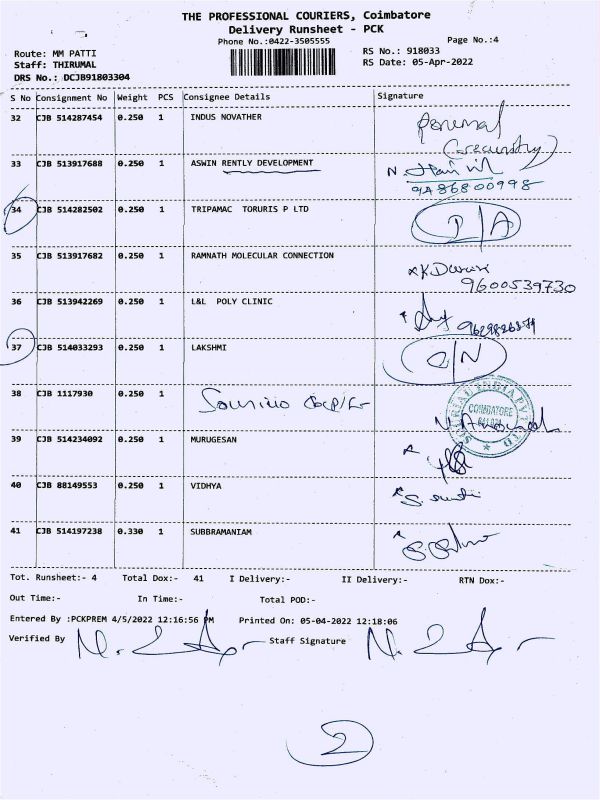 THE PROFESSIONAL COURIERS, Coimbatore
Delivery Runsheet - PCK
Phone No.:0422-3505555
Page No.:4
Route: MM PATTI
RS No.: 918033
Staff: THIRUMAL
RS Date: 05-Apr-2022
DRS No.: DCJB91803304
S No Consignment No Weight PCS Consignee Details Signature
32 CJB 514287454 0.250 1 INDUS NOVATHER
33 CJB 513917688 0.250 1 ASWIN RENTLY DEVELOPMENT
9486800998
34 CJB 514282502 0.250 1 TRIPAMAC TORURIS P LTD
35 CJB 513917682 0.250 1 RAMNATH MOLECULAR CONNECTION
9600539730
36 CJB 513942269 0.250 1 L&L POLY CLINIC
37 CJB 514033293 0.250 1 LAKSHMI
38 CJB 1117930 0.250 1
COIMBATORE
39 CJB 514234092 0.250 1 MURUGESAN
40 CJB 88149553 0.250 1 VIDHYA
41 CJB 514197238 0.330 1 SUBBRAMANIAM
Tot. Runsheet:- 4 Total Dox:- 41 I Delivery:- II Delivery:- RTN Dox:-
Out Time:- In Time:- Total POD:-
Entered By :PCKPREM 4/5/2022 12:16:56 PM Printed On: 05-04-2022 12:18:06
Verified By Staff Signature
2